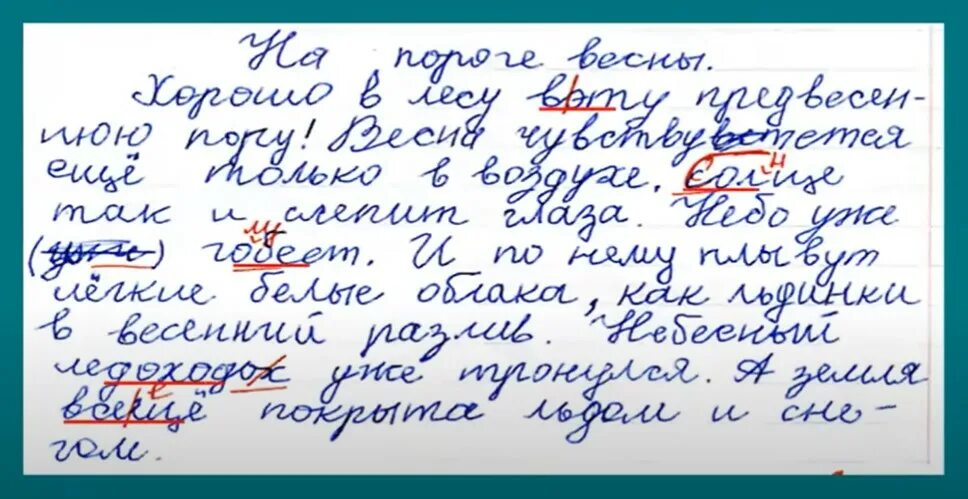 На пороге весны.
Хорошо в лесу вэту предвесен-
нюю пору! Весна чувствуветется
ещё только в воздухе. солнце
так и слепит глаза. Небо уже
(уже) гобеет. И по нему плывут
лёгкие белые облака, как льдинки
в весенний разлив. Небесный
ледоходох уже тронулся. А земля
всеещё покрыта льдом и сне-
гом.